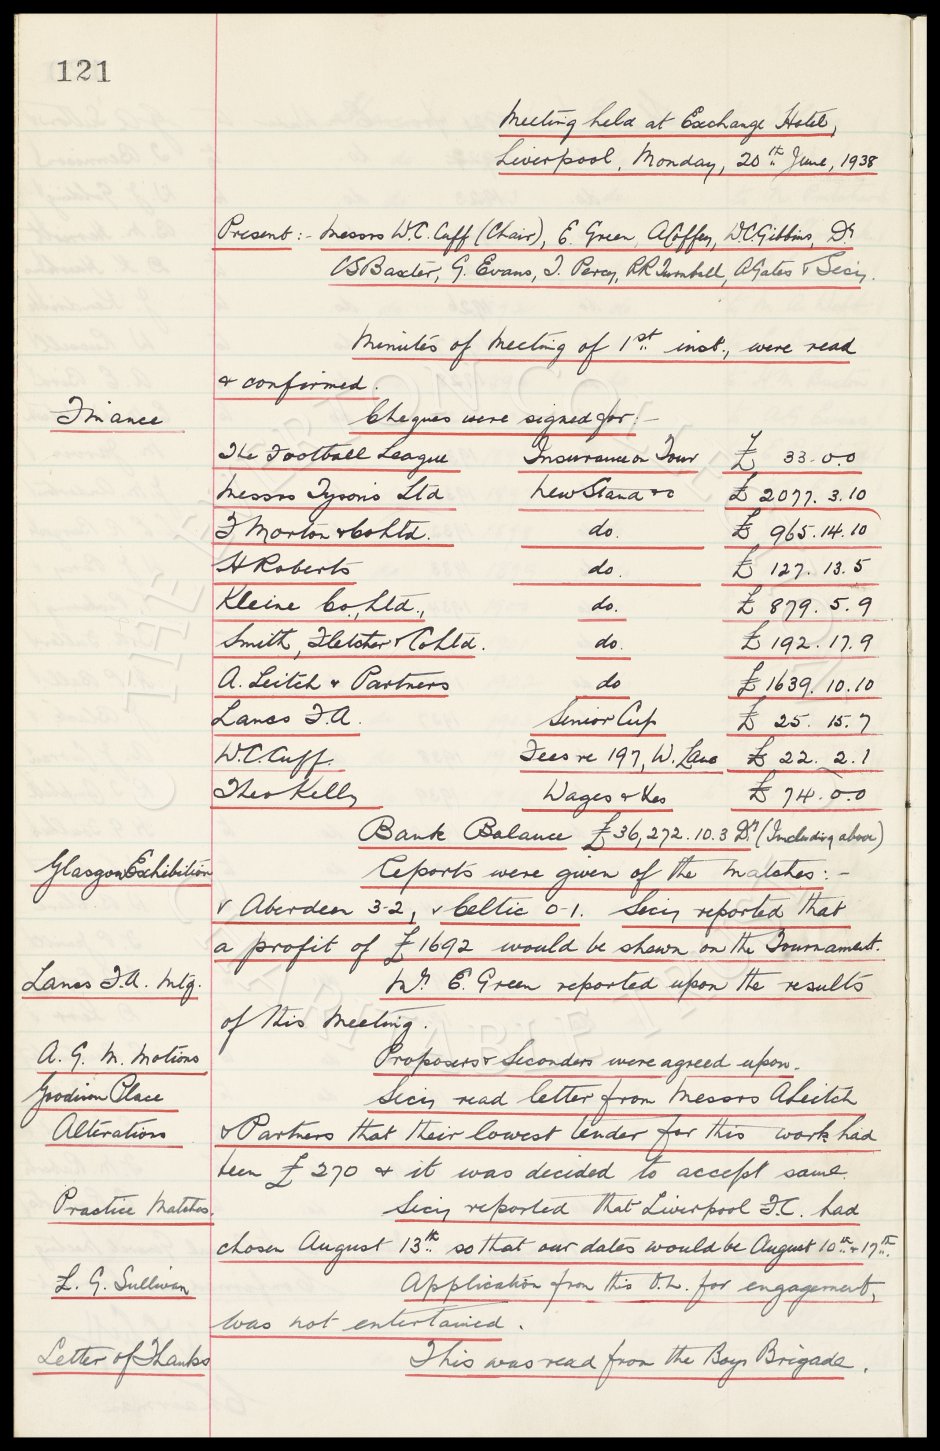 121
Meeting held at Exchange Hotel,
Liverpool, Monday, 20th June, 1938
Present:- Messrs W.C. Cuff (Chair), E. Green, A Coffey, W.C. Gibbins, Dr
C S Baxter, G. Evans, T. Percy, R R Turnbull, A Gates & Secy.
Minutes of Meeting of 1st inst., were read
& confirmed.
Finance Cheques were signed for:-
The Football League Insurance on Tour £ 33.0.0
Messrs Tysons Ltd New Stand &c £ 2077.3.10
F Morton & Co Ltd. do. £ 965.14.10
H Roberts do. £ 127.13.5
Kleine Co., Ltd., do. £ 879.5.9
Smith, Fletcher & Co Ltd. do. £ 192.17.9
A. Leitch & Partners do £ 1639.10.10
Lancs F.A. Senior Cup £ 25.15.7
W.C. Cuff. Fees re 197, W. Lane £ 22.2.1
Theo Kelly Wages & Xes £ 74.0.0
Bank Balance £36,272.10.3 Dr (Including above)
Glasgow Exhibition Reports were given of the matches:-
v Aberdeen 3-2, v Celtic 0-1. Secy reported that
a profit of £1692 would be shewn on the Tournament.
Lancs F.A. Mtg. Mr. E. Green reported upon the results
of this meeting.
A. G. M. Motions Proposers & Seconders were agreed upon.
Goodison Place Secy read letter from Messrs A Leitch
Alterations & Partners that their lowest tender for this work had
been £270 & it was decided to accept same.
Practice Matches. Secy reported that Liverpool F.C. had
chosen August 13th so that our dates would be August 10th & 17th.
L. G. Sullivan Application from this O.L. for engagement,
was not entertained.
Letter of Thanks This was read from the Boys Brigade.
THE EVERTON